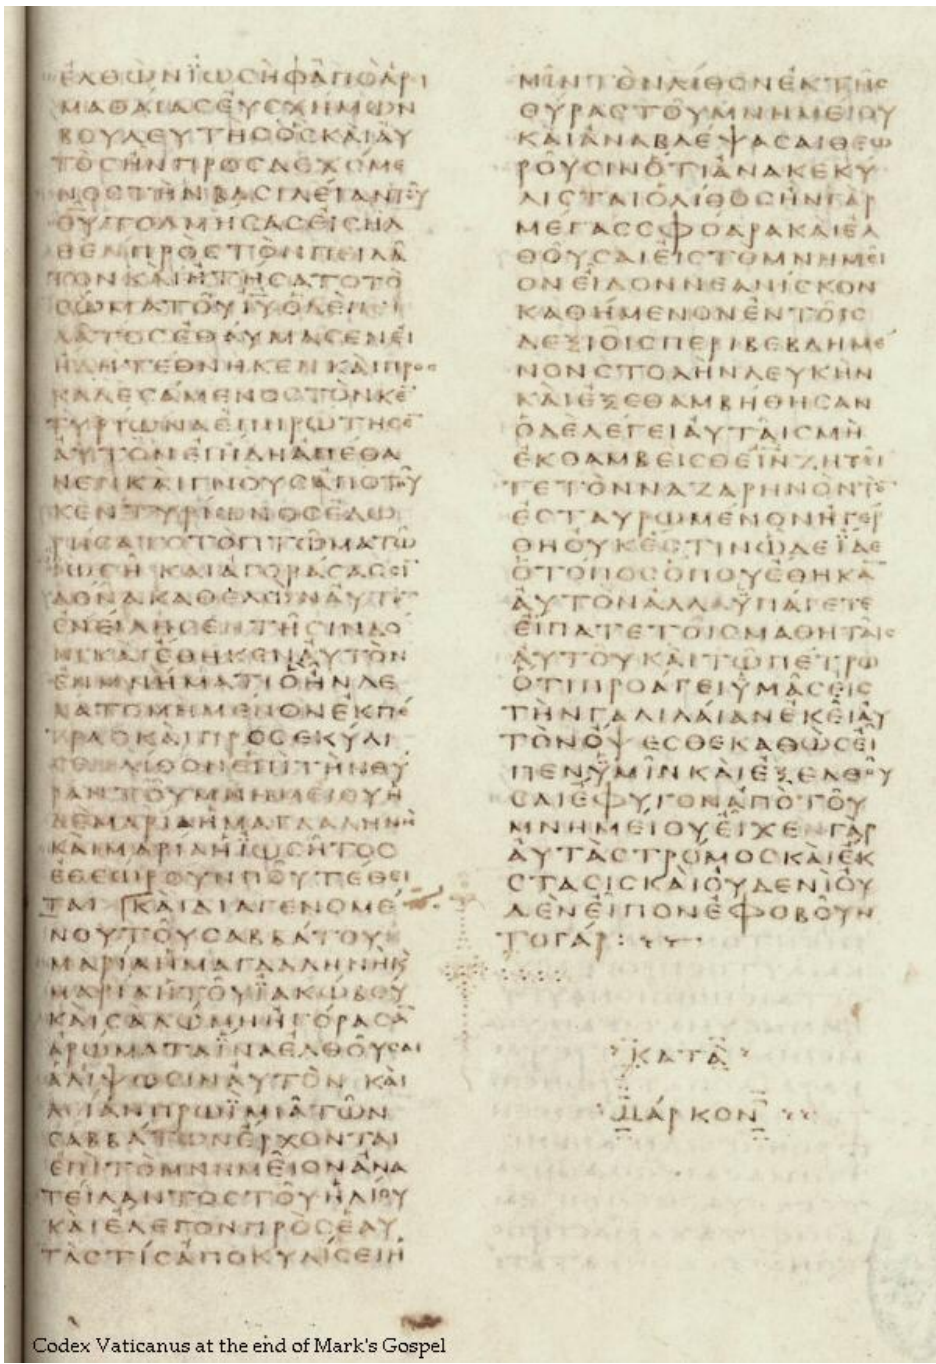 ΕΛΘΩΝΪΩϹΗΦΑΠΟΑΡΙ
ΜΑΘΑΙΑϹΕΥϹΧΗΜΩΝ
ΒΟΥΛΕΥΤΗϹΟϹΚΑΙΑΥ
ΤΟϹΗΝΠΡΟϹΔΕΧΟΜΕ
ΝΟϹΤΗΝΒΑϹΙΛΕΙΑΝΤΟΥ
ΘΥΤΟΛΜΗϹΑϹΕΙϹΗΛ
ΘΕΝΠΡΟϹΤΟΝΠΕΙΛΑ
ΤΟΝΚΑΙΗΤΗϹΑΤΟΤΟ
ϹΩΜΑΤΟΥΙΥΟΔΕΠΕΙ
ΛΑΤΟϹΕΘΑΥΜΑϹΕΝΕΙ
ΗΔΗΤΕΘΝΗΚΕΝΚΑΙΠΡΟϹ
ΚΑΛΕϹΑΜΕΝΟϹΤΟΝΚΕ̅
ΤΥΡΙΩΝΑΕΠΗΡΩΤΗϹΕ̅
ΑΥΤΟΝΕΙΗΔΗΑΠΕΘΑ
ΝΕΝΚΑΙΓΝΟΥϹΑΠΟΤΟΥ
ΚΕΝΤΥΡΙΩΝΟϹΕΔΩ
ΡΗϹΑΤΟΤΟΠΤΩΜΑΤΩ
ΪΩϹΗΚΑΙΑΓΟΡΑϹΑϹϹΙ̅
ΔΟΝΑΚΑΘΕΛΩΝΑΥΤΟ̅
ΕΝΕΙΛΗϹΕΝΤΗϹΙΝΔΟ
ΝΙΚΑΙΕΘΗΚΕΝΑΥΤΟΝ
ΕΝΜΝΗΜΑΤΙΟΗΝΛΕ
ΛΑΤΟΜΗΜΕΝΟΝΕΚΠΕ
ΤΡΑϹΚΑΙΠΡΟϹΕΚΥΛΙ
ϹΕΝΛΙΘΟΝΕΠΙΤΗΝΘΥ
ΡΑΝΤΟΥΜΝΗΜΕΙΟΥΗ
ΔΕΜΑΡΙΑΗΜΑΓΔΑΛΗΝΗ
ΚΑΙΜΑΡΙΑΗΪΩϹΗΤΟϹ
ΕΘΕΩΡΟΥΝΠΟΥΤΕΘΕΙ
ΤΑΙ ΚΑΙΔΙΑΓΕΝΟΜΕ
ΝΟΥΤΟΥϹΑΒΒΑΤΟΥ
ΜΑΡΙΑΗΜΑΓΔΑΛΗΝΗΚ
ΜΑΡΙΑΗΤΟΥΪΑΚΩΒΟΥ
ΚΑΙϹΑΛΩΜΗΗΓΟΡΑϹΑ̅
ΑΡΩΜΑΤΑΪΝΑΕΛΘΟΥϹΑΙ
ΑΛΙΨΩϹΙΝΑΥΤΟΝ ΚΑΙ
ΛΙΑΝΠΡΩΪΜΙΑΤΩΝ
ϹΑΒΒΑΤΩΝΕΡΧΟΝΤΑΙ
ΕΠΙΤΟΜΝΗΜΕΙΟΝΑΝΑ
ΤΕΙΛΑΝΤΟϹΤΟΥΗΛΙΟΥ
ΚΑΙΕΛΕΓΟΝΠΡΟϹΕΑΥ
ΤΑϹΤΙϹΑΠΟΚΥΛΙϹΕΙΗ
ΜΙΝΤΟΝΛΙΘΟΝΕΚΤΗϹ
ΘΥΡΑϹΤΟΥΜΝΗΜΕΙΟΥ
ΚΑΙΑΝΑΒΛΕΨΑϹΑΙΘΕΩ
ΡΟΥϹΙΝΟΤΙΑΝΑΚΕΚΥ
ΛΙϹΤΑΙΟΛΙΘΟϹΗΝΓΑΡ
ΜΕΓΑϹϹΦΟΔΡΑΚΑΙΕΛ
ΘΟΥϹΑΙΕΙϹΤΟΜΝΗΜΕΙ
ΟΝΕΙΔΟΝΝΕΑΝΙϹΚΟΝ
ΚΑΘΗΜΕΝΟΝΕΝΤΟΙϹ
ΔΕΞΙΟΙϹΠΕΡΙΒΕΒΛΗΜΕ
ΝΟΝϹΤΟΛΗΝΛΕΥΚΗΝ
ΚΑΙΕΞΕΘΑΜΒΗΘΗϹΑΝ
ΟΔΕΛΕΓΕΙΑΥΤΑΙϹΜΗ
ΕΚΘΑΜΒΕΙϹΘΕΙΝΖΗΤΕΙ
ΤΕΤΟΝΝΑΖΑΡΗΝΟΝΤΟ̅
ΕϹΤΑΥΡΩΜΕΝΟΝΗΓΕΡ
ΘΗΟΥΚΕϹΤΙΝΩΔΕΪΔΕ
ΟΤΟΠΟϹΟΠΟΥΕΘΗΚΑ̅
ΑΥΤΟΝΑΛΛΑΫΠΑΓΕΤΕ
ΕΙΠΑΤΕΤΟΙϹΜΑΘΗΤΑΙϹ
ΑΥΤΟΥΚΑΙΤΩΠΕΤΡΩ
ΟΤΙΠΡΟΑΓΕΙΫΜΑϹΕΙϹ
ΤΗΝΓΑΛΙΛΑΙΑΝΕΚΕΙΑΥ
ΤΟΝΟΨΕϹΘΕΚΑΘΩϹΕΙ
ΠΕΝΫΜΙΝΚΑΙΕΞΕΛΘΟΥ
ϹΑΙΕΦΥΓΟΝΑΠΟΤΟΥ
ΜΝΗΜΕΙΟΥΕΙΧΕΝΓΑΡ
ΑΥΤΑϹΤΡΟΜΟϹΚΑΙΕΚ
ϹΤΑϹΙϹΚΑΙΟΥΔΕΝΙΟΥ
ΔΕΝΕΙΠΟΝΕΦΟΒΟΥΝ
ΤΟΓΑΡ:
ΚΑΤΑ
ΜΑΡΚΟΝ
Codex Vaticanus at the end of Mark's Gospel